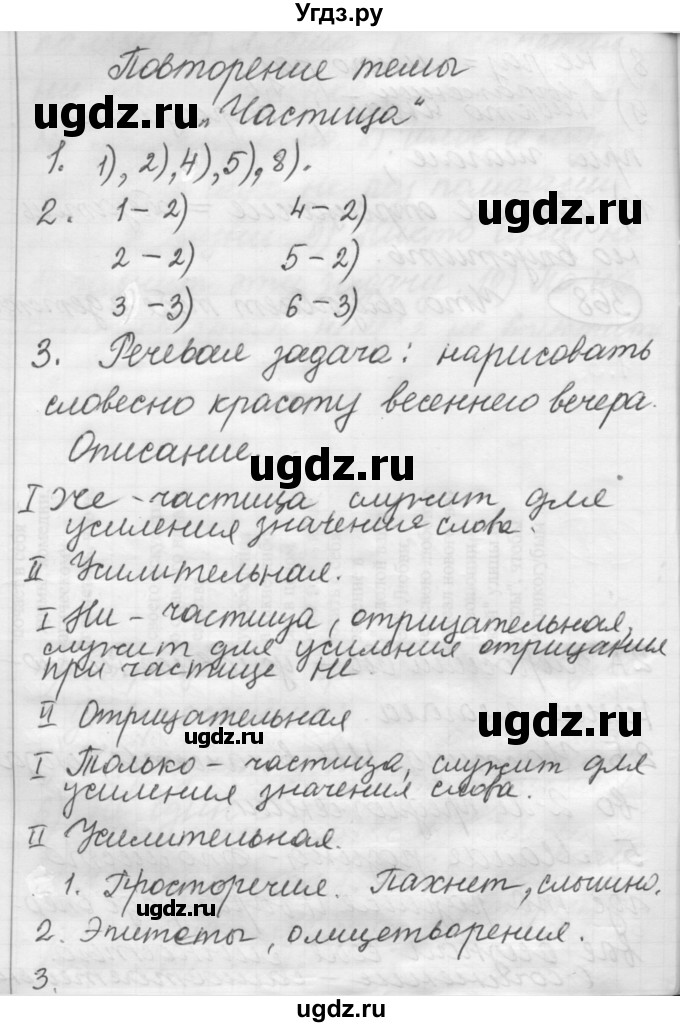 Угдз.ру
Повторение темы
„Частица“
ugdz.ru
1. 1), 2), 4), 5), 8).
2. 1 – 2) 4 – 2)
ugdz.ru
2 – 2) 5 – 2)
3 – 3) 6 – 3)
3. Речевая задача: нарисовать
словесно красоту весеннего вечера.
Описание.
ugdz.ru
I Же – частица служит для
усиления значения слова.
II Усилительная.
I Ни – частица, отрицательная,
служит для усиления отрицания
при частице не
II Отрицательная
ugdz.ru
ugdz.ru
I Только – частица, служит для
усиления значения слова.
II Усилительная.
1. Просторечия. Пахнет, слышно.
ugdz.ru
2. Эпитеты, олицетворения.
3.
ugdz.ru
ugdz.ru